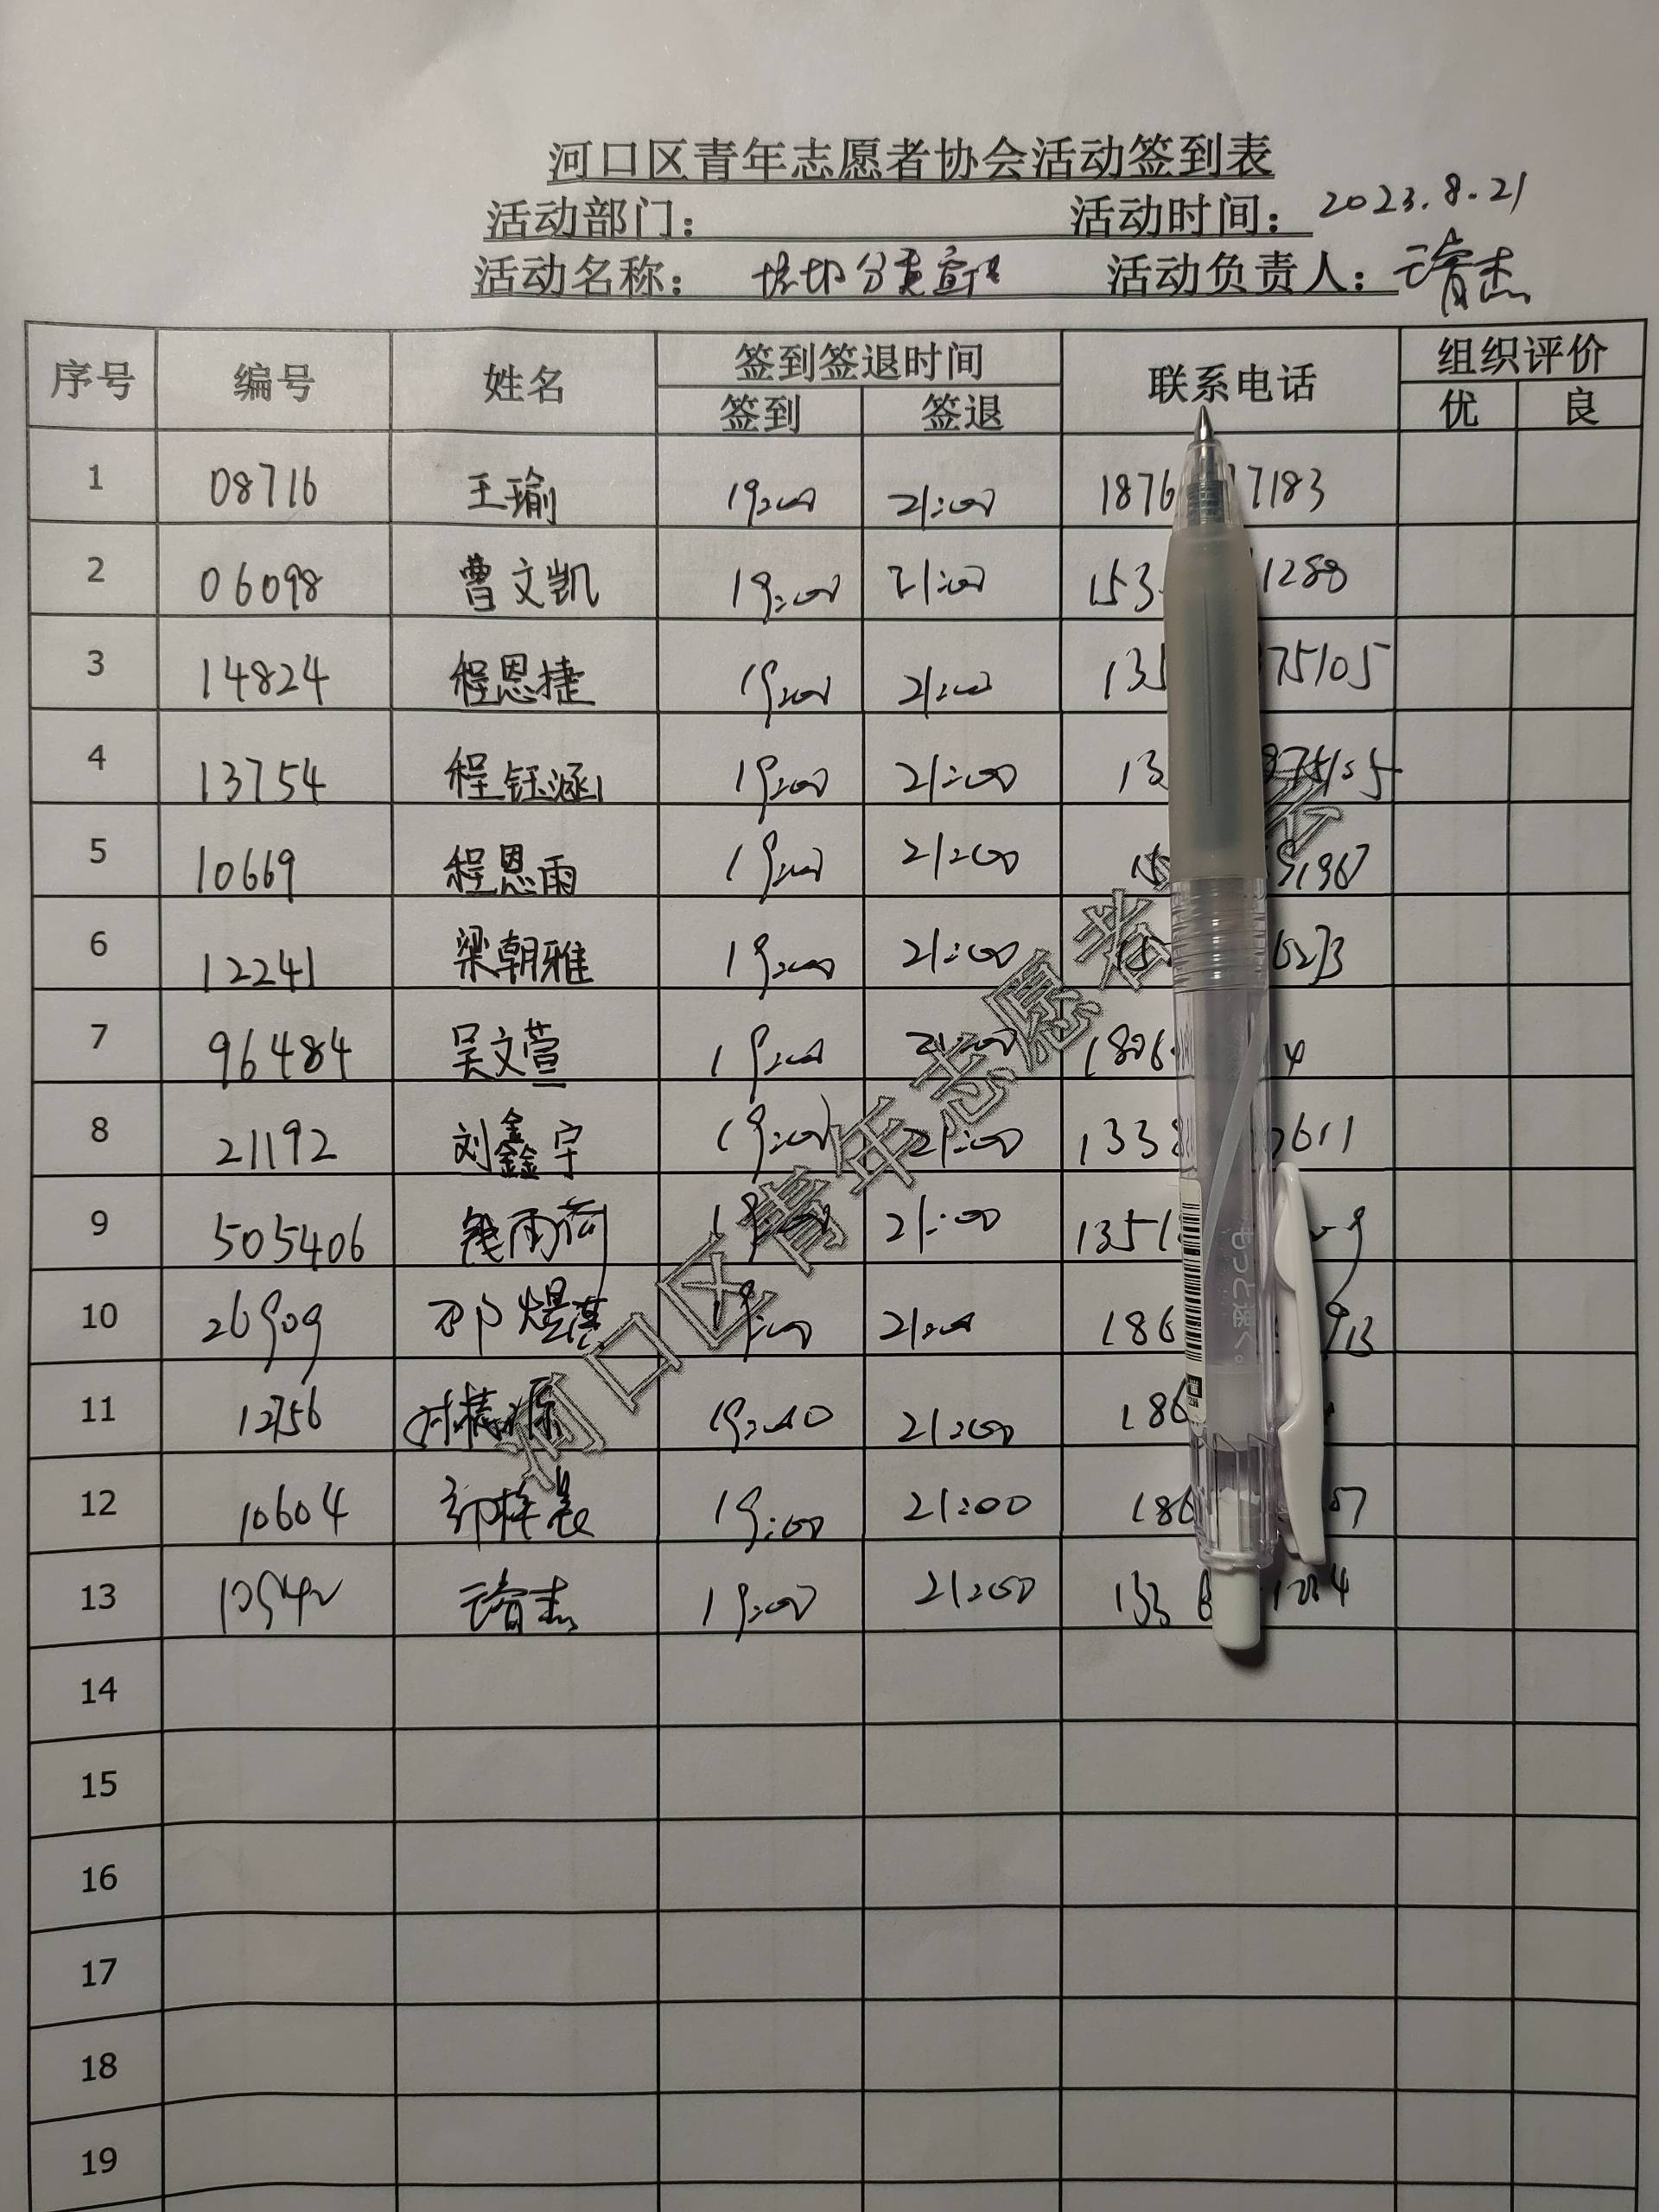 河口区青年志愿者协会活动签到表
活动部门： 活动时间：2023.8.21
活动名称： 垃圾分类宣传 活动负责人：
序号 编号 姓名 签到签退时间 联系电话 组织评价
签到 签退 优 良
1 08716 王瑜 19:00 21:00 1876 7183
2 06098 曹文凯 19:00 21:00 153 1288
3 14824 程恩捷 19:00 21:00 135 75105
4 13754 程钰涵 19:00 21:00 13 875105
5 10669 程恩雨 19:00 21:00 15 91967
6 12241 梁朝雅 19:00 21:00 15 6273
7 96484 吴文萱 19:00 21:00 1806 4
8 21192 刘鑫宇 19:00 21:00 1338 2611
9 505406 19:00 21:00 1351 9
10 26909 19:00 21:00 186 913
11 12756 19:00 21:00 186
12 10604 19:00 21:00 186 07
13 19:00 21:00 133
14
15
16
17
18
19
河口区青年志愿者
もっと速く。